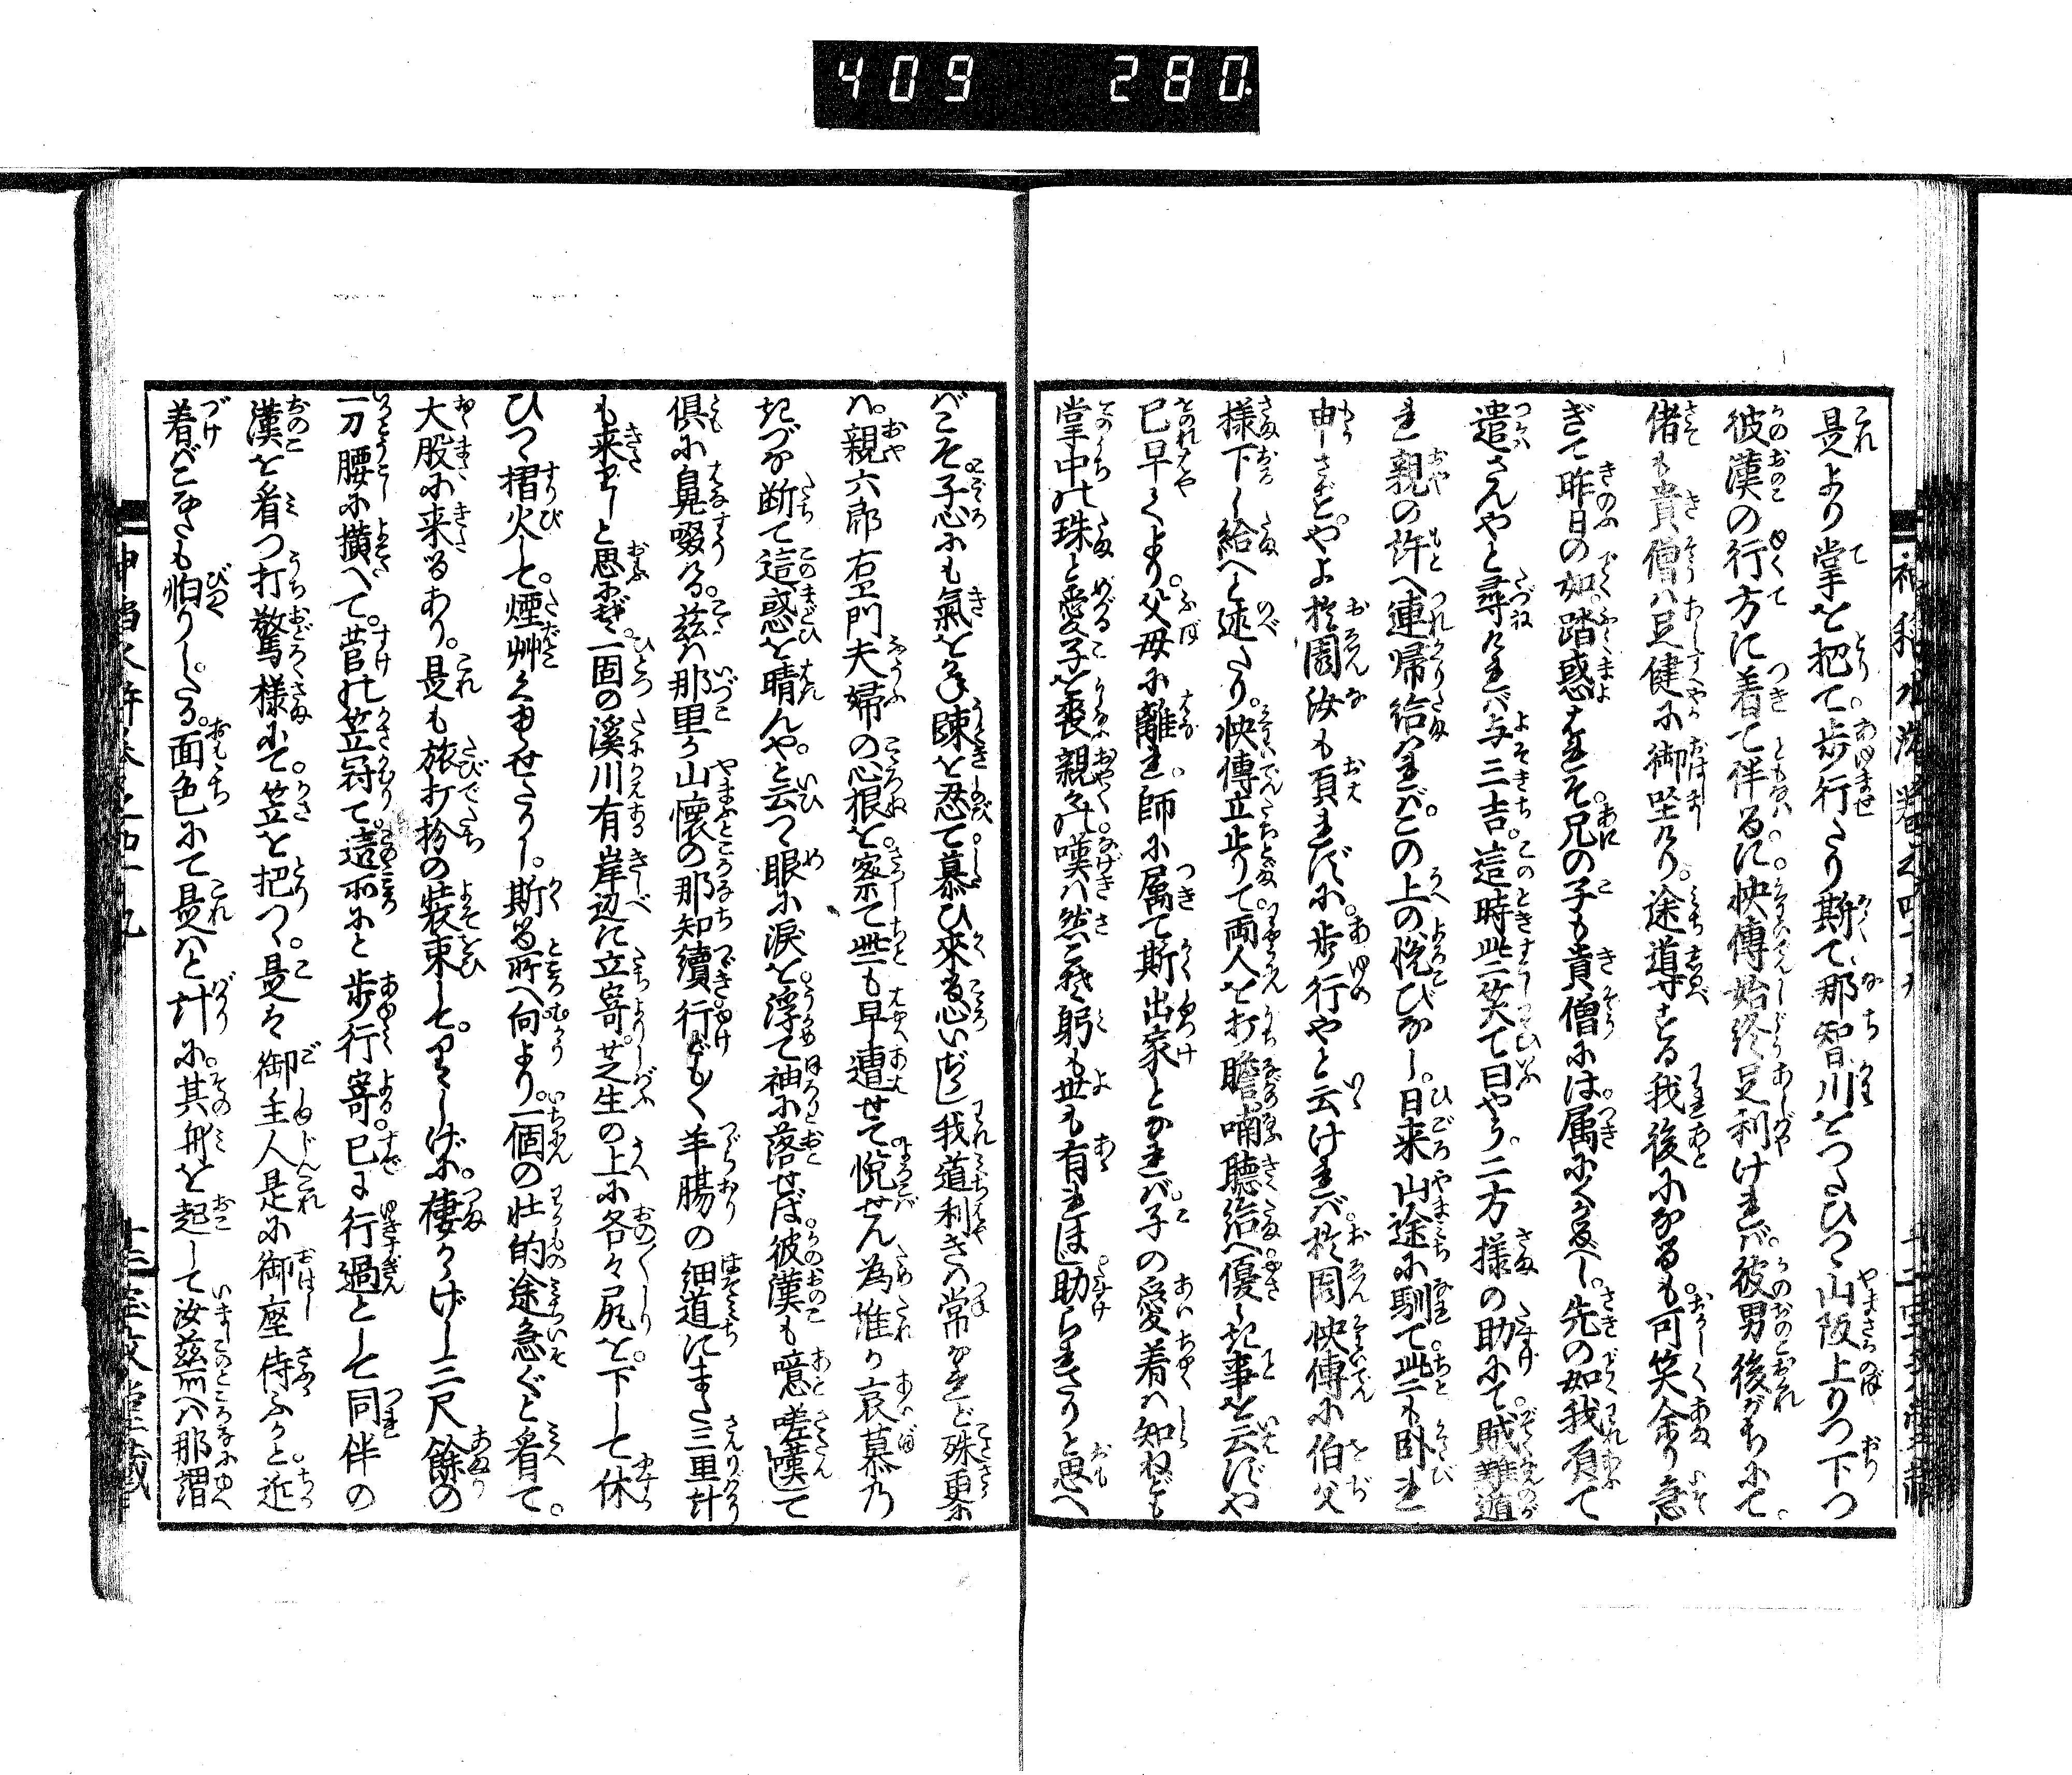 409 280
是より掌を把て。歩行たり斯て那智川をつたひつゝ山阪上りつ下つ
彼漢の行方に着て伴るに。快傳始終足利けれバ。彼男後がちにて。
偖も貴僧ハ足健に御坐なり。途導する我後になるも。可笑余り急
ぎて昨日の如。踏惑はれそ。兄の子も貴僧には。属にくかるべし。先の如我負て
遣さんやと尋けれバ与三吉。這時些笑て曰やう。二方様の助にて。賊難遁
れ親の許へ連帰給ハれバ。この上の、悦びなし。日来山途に馴て。些も臥れ
申さずとやよ於園汝も負れずに。歩行やと云けれバ。於園快傳に伯父
様下し給へと述たり。快傳立止りて。両人を打瞻喃聴給へ優しき事を云ずや
已早くより。父母に離れ。師に属て斯出家となれバ。子の愛着ハ知ねども
掌中の珠と愛子を喪親々の。嘆ハ然こそ躬も世も有れまじ。助られたりと思へ
バこそ子心にも氣を疎を忍て。慕ひ來る心いぢらし我道利きハ常なれど殊更に
ハ。親六郎右卫門夫婦の心根を。察て些も早遭せて悦せん為誰か哀慕乃
きづな断て這惑を晴んや。と云つ眼に涙を。浮て袖に落せば。彼漢も噫嗟嘆て
倶に鼻啜ける。茲ハ那里か山懐の那知續。行ども〳〵羊腸の細道にまた三里計
も来りしと思ふ頃。一固の溪川有岸辺に立寄。芝生の上に各々尻を。下して休
ひつ摺火して。煙艸くゆせたりし。斯る所へ向より。一個の壮的途急ぐと看て。
大股に来るあり。是も旅打扮の装束して。りゝしげに。棲からげし三尺餘の
一刀腰に横へて。菅の笠冠て。這所にと歩行寄。已に行過として同伴の
漢を看つ打驚様にて。笠を把つゝ。是ハ御主人是に御座侍ふかと。近
着バこなたも怕りしたる。面色にて是ハと計に。其身を起して汝茲所ハ那謂